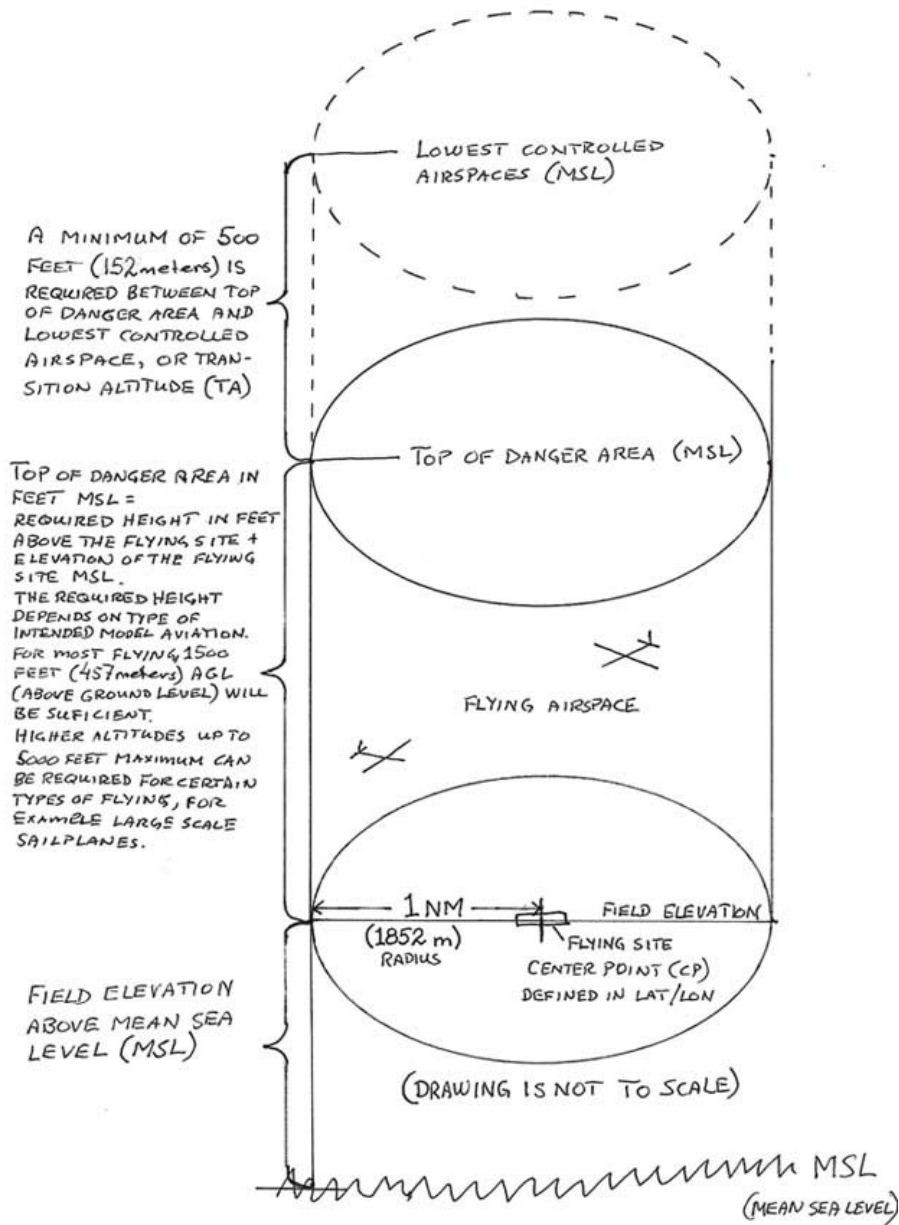 LOWEST CONTROLLED
AIRSPACES (MSL)
A MINIMUM OF 500
FEET (152 meters) IS
REQUIRED BETWEEN TOP
OF DANGER AREA AND
LOWEST CONTROLLED
AIRSPACE, OR TRAN-
SITION ALTITUDE (TA)
TOP OF DANGER AREA (MSL)
TOP OF DANGER AREA IN
FEET MSL =
REQUIRED HEIGHT IN FEET
ABOVE THE FLYING SITE +
ELEVATION OF THE FLYING
SITE MSL.
THE REQUIRED HEIGHT
DEPENDS ON TYPE OF
INTENDED MODEL AVIATION.
FOR MOST FLYING, 1500
FEET (457 meters) AGL
(ABOVE GROUND LEVEL) WILL
BE SUFICIENT.
HIGHER ALTITUDES UP TO
5000 FEET MAXIMUM CAN
BE REQUIRED FOR CERTAIN
TYPES OF FLYING, FOR
EXAMPLE LARGE SCALE
SAILPLANES.
FLYING AIRSPACE
1 NM
(1852 m)
RADIUS
FIELD ELEVATION
FLYING SITE
CENTER POINT (CP)
DEFINED IN LAT/LON
FIELD ELEVATION
ABOVE MEAN SEA
LEVEL (MSL)
(DRAWING IS NOT TO SCALE)
MSL
(MEAN SEA LEVEL)